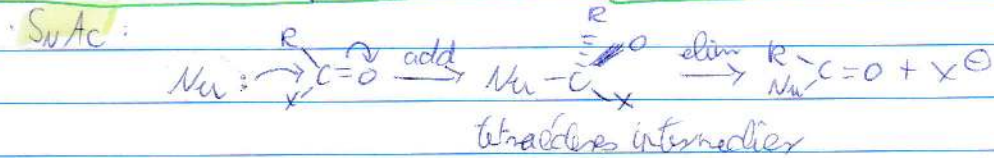 · SNAc:
Nu: R C=O X add Nu-C R O X elim R Nu C=O + X⊖
tetraéderes intermedier